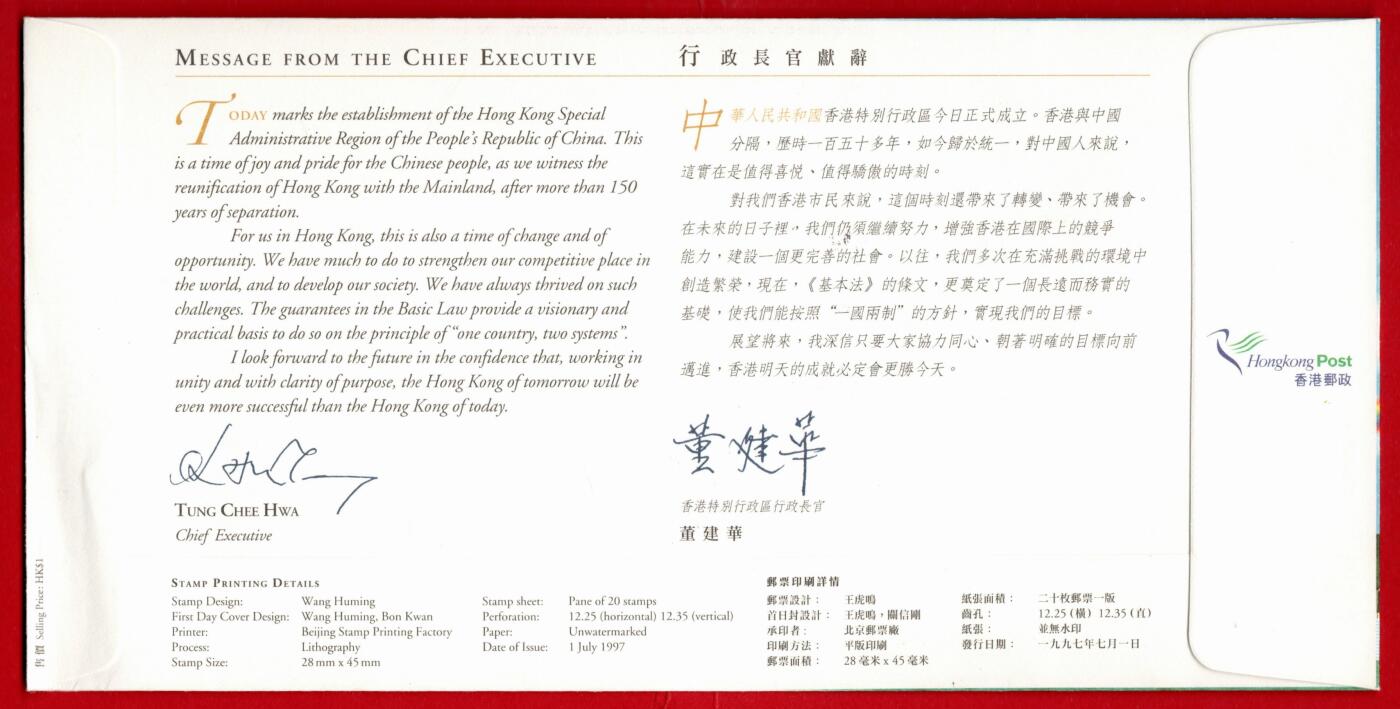 MESSAGE FROM THE CHIEF EXECUTIVE
TODAY marks the establishment of the Hong Kong Special
Administrative Region of the People's Republic of China. This
is a time of joy and pride for the Chinese people, as we witness the
reunification of Hong Kong with the Mainland, after more than 150
years of separation.
For us in Hong Kong, this is also a time of change and of
opportunity. We have much to do to strengthen our competitive place in
the world, and to develop our society. We have always thrived on such
challenges. The guarantees in the Basic Law provide a visionary and
practical basis to do so on the principle of "one country, two systems".
I look forward to the future in the confidence that, working in
unity and with clarity of purpose, the Hong Kong of tomorrow will be
even more successful than the Hong Kong of today.
TUNG CHEE HWA
Chief Executive
行政長官獻辭
中華人民共和國香港特別行政區今日正式成立。香港與中國
分隔，歷時一百五十多年，如今歸於統一，對中國人來說，
這實在是值得喜悅、值得驕傲的時刻。
對我們香港市民來說，這個時刻還帶來了轉變、帶來了機會。
在未來的日子裡，我們仍須繼續努力，增強香港在國際上的競爭
能力，建設一個更完善的社會。以往，我們多次在充滿挑戰的環境中
創造繁榮，現在，《基本法》的條文，更奠定了一個長遠而務實的
基礎，使我們能按照“一國兩制”的方針，實現我們的目標。
展望將來，我深信只要大家協力同心、朝著明確的目標向前
邁進，香港明天的成就必定會更勝今天。
董建華
香港特別行政區行政長官
董建華
HongkongPost
香港郵政
售價 Selling Price: HK$1
STAMP PRINTING DETAILS
Stamp Design: Wang Huming
First Day Cover Design: Wang Huming, Bon Kwan
Printer: Beijing Stamp Printing Factory
Process: Lithography
Stamp Size: 28 mm x 45 mm
Stamp sheet: Pane of 20 stamps
Perforation: 12.25 (horizontal) 12.35 (vertical)
Paper: Unwatermarked
Date of Issue: 1 July 1997
郵票印刷詳情
郵票設計： 王虎鳴
首日封設計： 王虎鳴，關信剛
承印者： 北京郵票廠
印刷方法： 平版印刷
郵票面積： 28 毫米 x 45 毫米
紙張面積： 二十枚郵票一版
齒孔： 12.25 (橫) 12.35 (直)
紙張： 並無水印
發行日期： 一九九七年七月一日